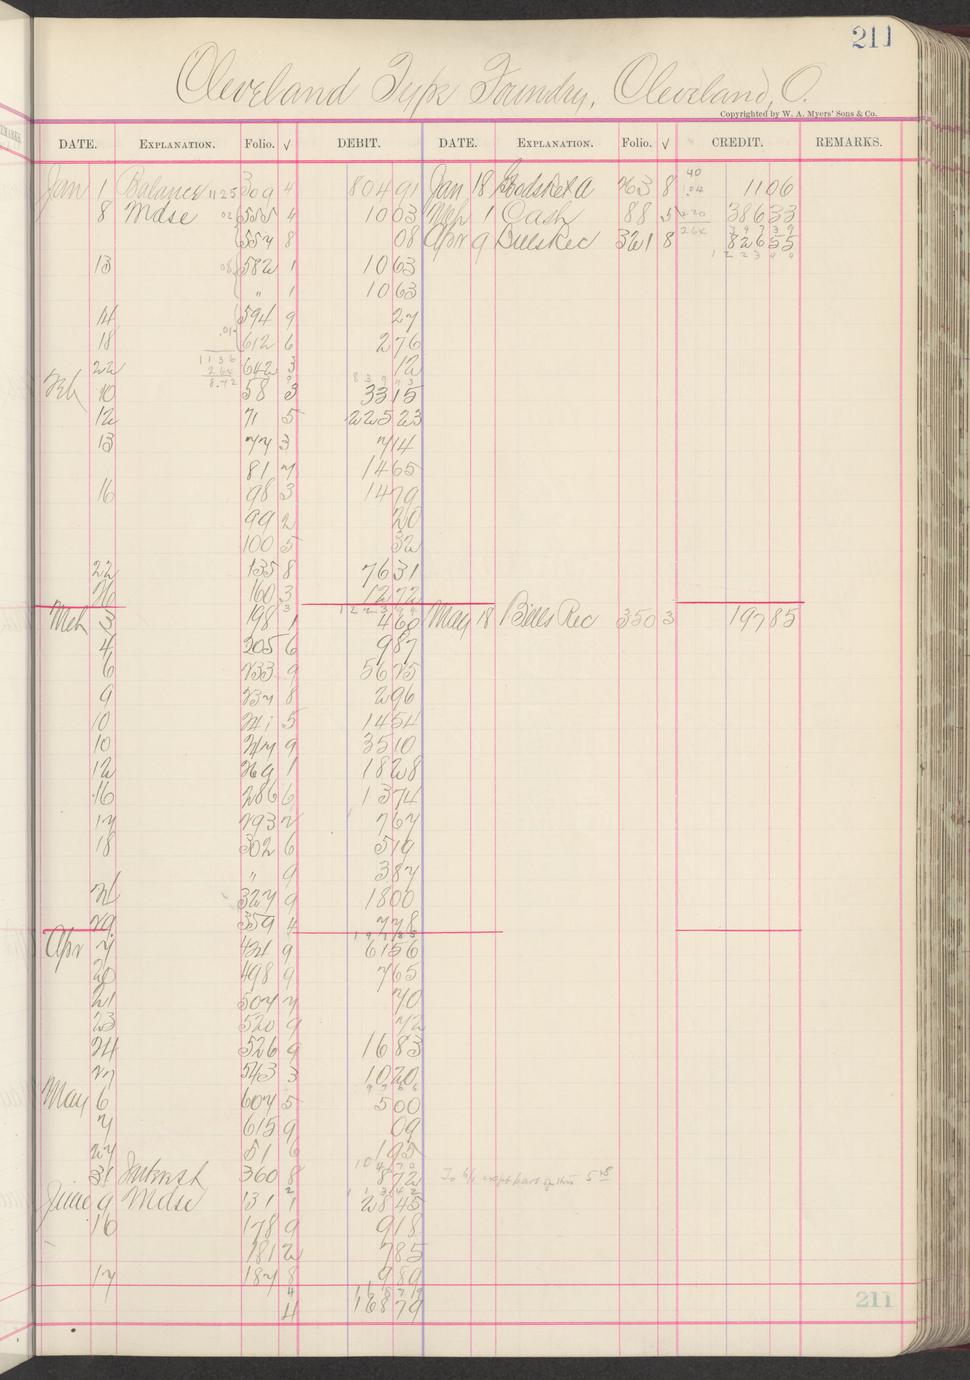 211
Cleveland Type Foundry, Cleveland, O.
Copyrighted by W. A. Myers' Sons & Co.
DATE. EXPLANATION. Folio. √ DEBIT. DATE. EXPLANATION. Folio. √ CREDIT. REMARKS.
Jan 1 Balance 11 25 309 4 804 91 Jan 18 763 8 11 06
8 Mdse 4 10 03 Mch 1 Cash 88 5 386 33
557 8 08 Apr 9 Bills Rec 321 8 826 55
13 582 1 10 63 12239 9
" 1 10 63
14 594 9 27
18 612 6 2 76
22 642 3 12
Feb 10 58 3 33 15
12 71 5 225 23
13 77 3 7 14
81 7 14 65
16 98 3 14 79
99 2 20
100 5 32
22 135 8 76 31
26 160 3 12 72
Mch 3 198 1 4 60 May 18 Bills Rec 350 3 197 85
4 205 6 9 87
6 233 9 56 25
9 237 8 2 96
10 241 5 14 54
10 247 9 35 10
12 269 1 18 28
16 286 6 13 74
17 293 2 7 67
18 302 6 5 19
" 9 3 87
24 327 9 18 00
29 359 4 7 78
Apr 7 424 9 61 56
20 498 9 7 65
21 507 7 70
23 520 9 72
24 526 9 16 83
27 543 3 10 20
May 6 607 5 5 00
7 615 9 09
27 51 6 1 95
31 Interest 360 8 8 72
June 9 Mdse 131 1 28 45
16 178 9 9 18
181 2 7 85
17 187 8 9 89
4 168 79
211